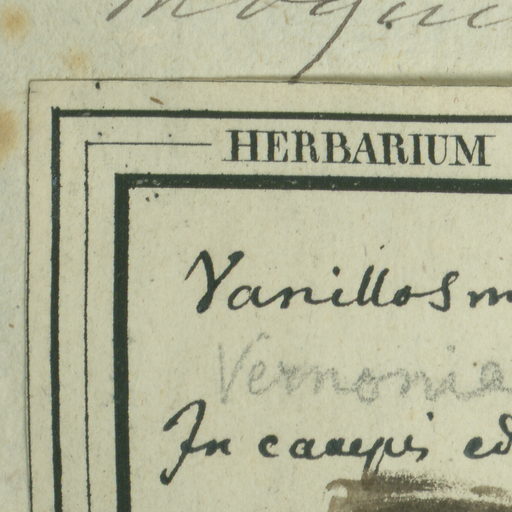 HERBARIUM
Vanillosm
Vernonia
In campis ed